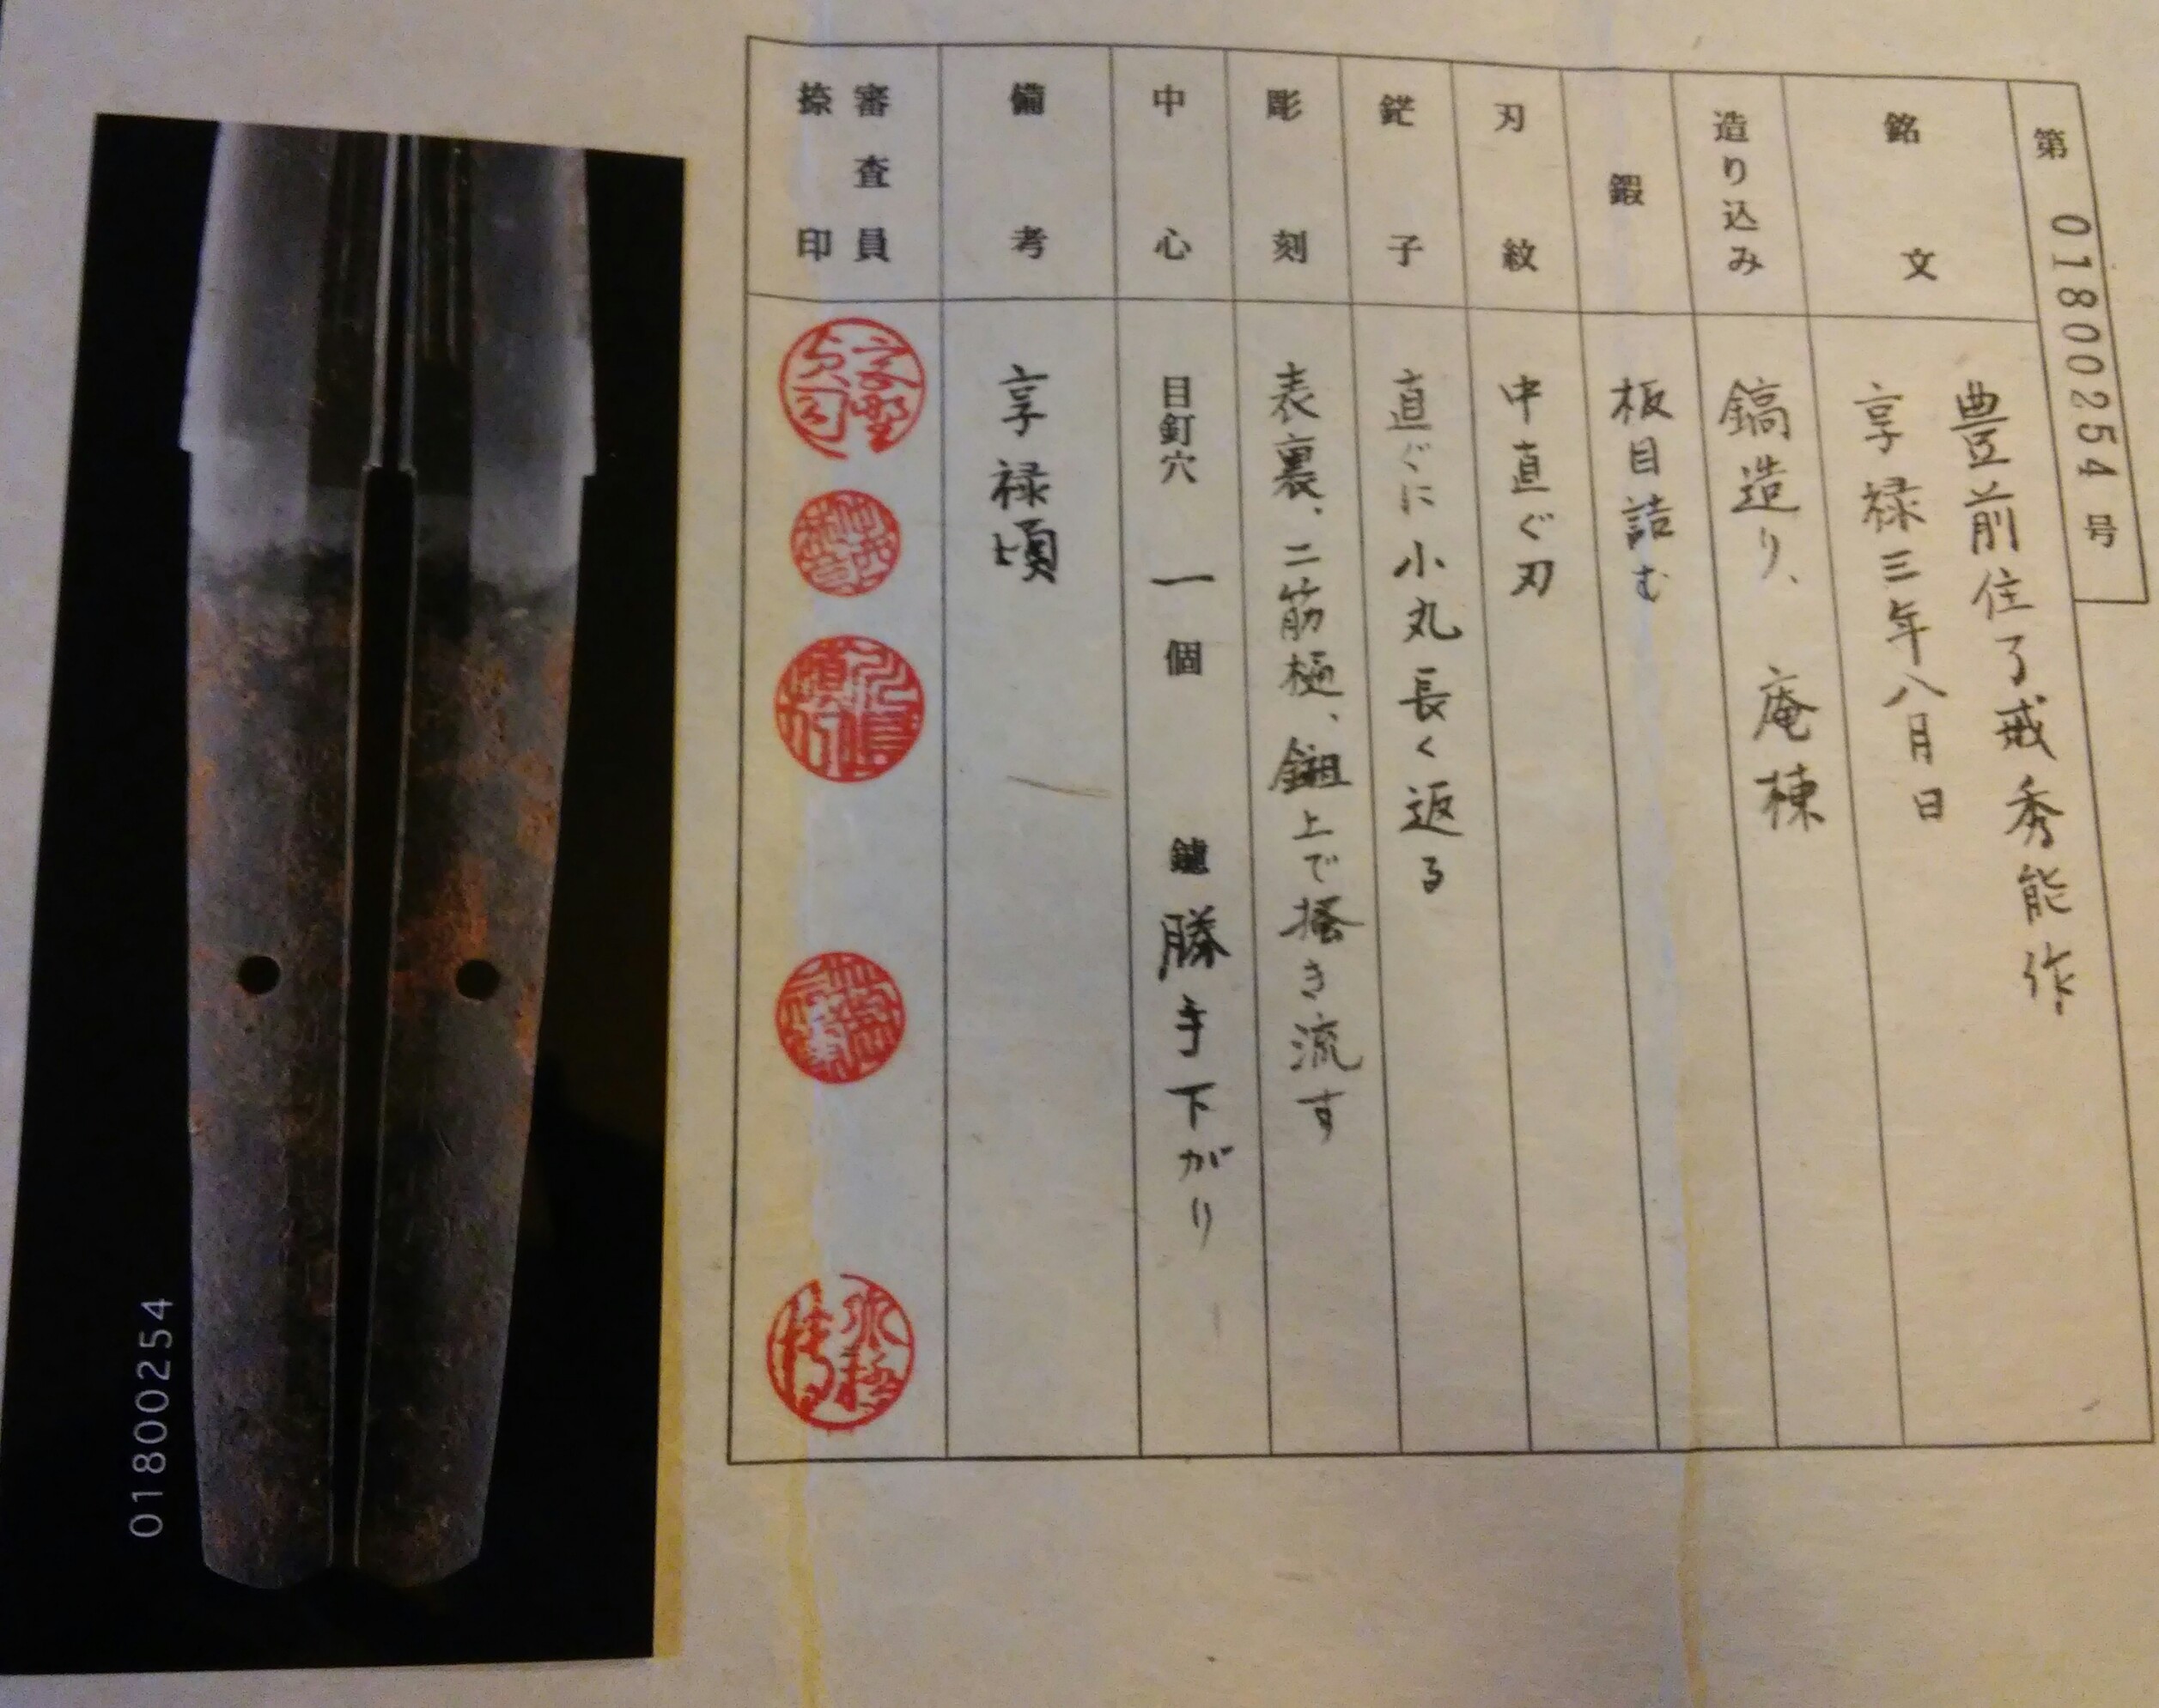 第 01800254 号
銘文
豊前住了戒秀能作
享禄三年八月日
造り込み
鎬造り、庵棟
鍜
板目詰む
刃紋
中直ぐ刃
鋩子
直ぐに小丸長く返る
彫刻
表裏、二筋樋、鎺上で掻き流す
中心
目釘穴 一 個 鑢 勝手下がり
備考
享禄頃
審査員
捺印
01800254